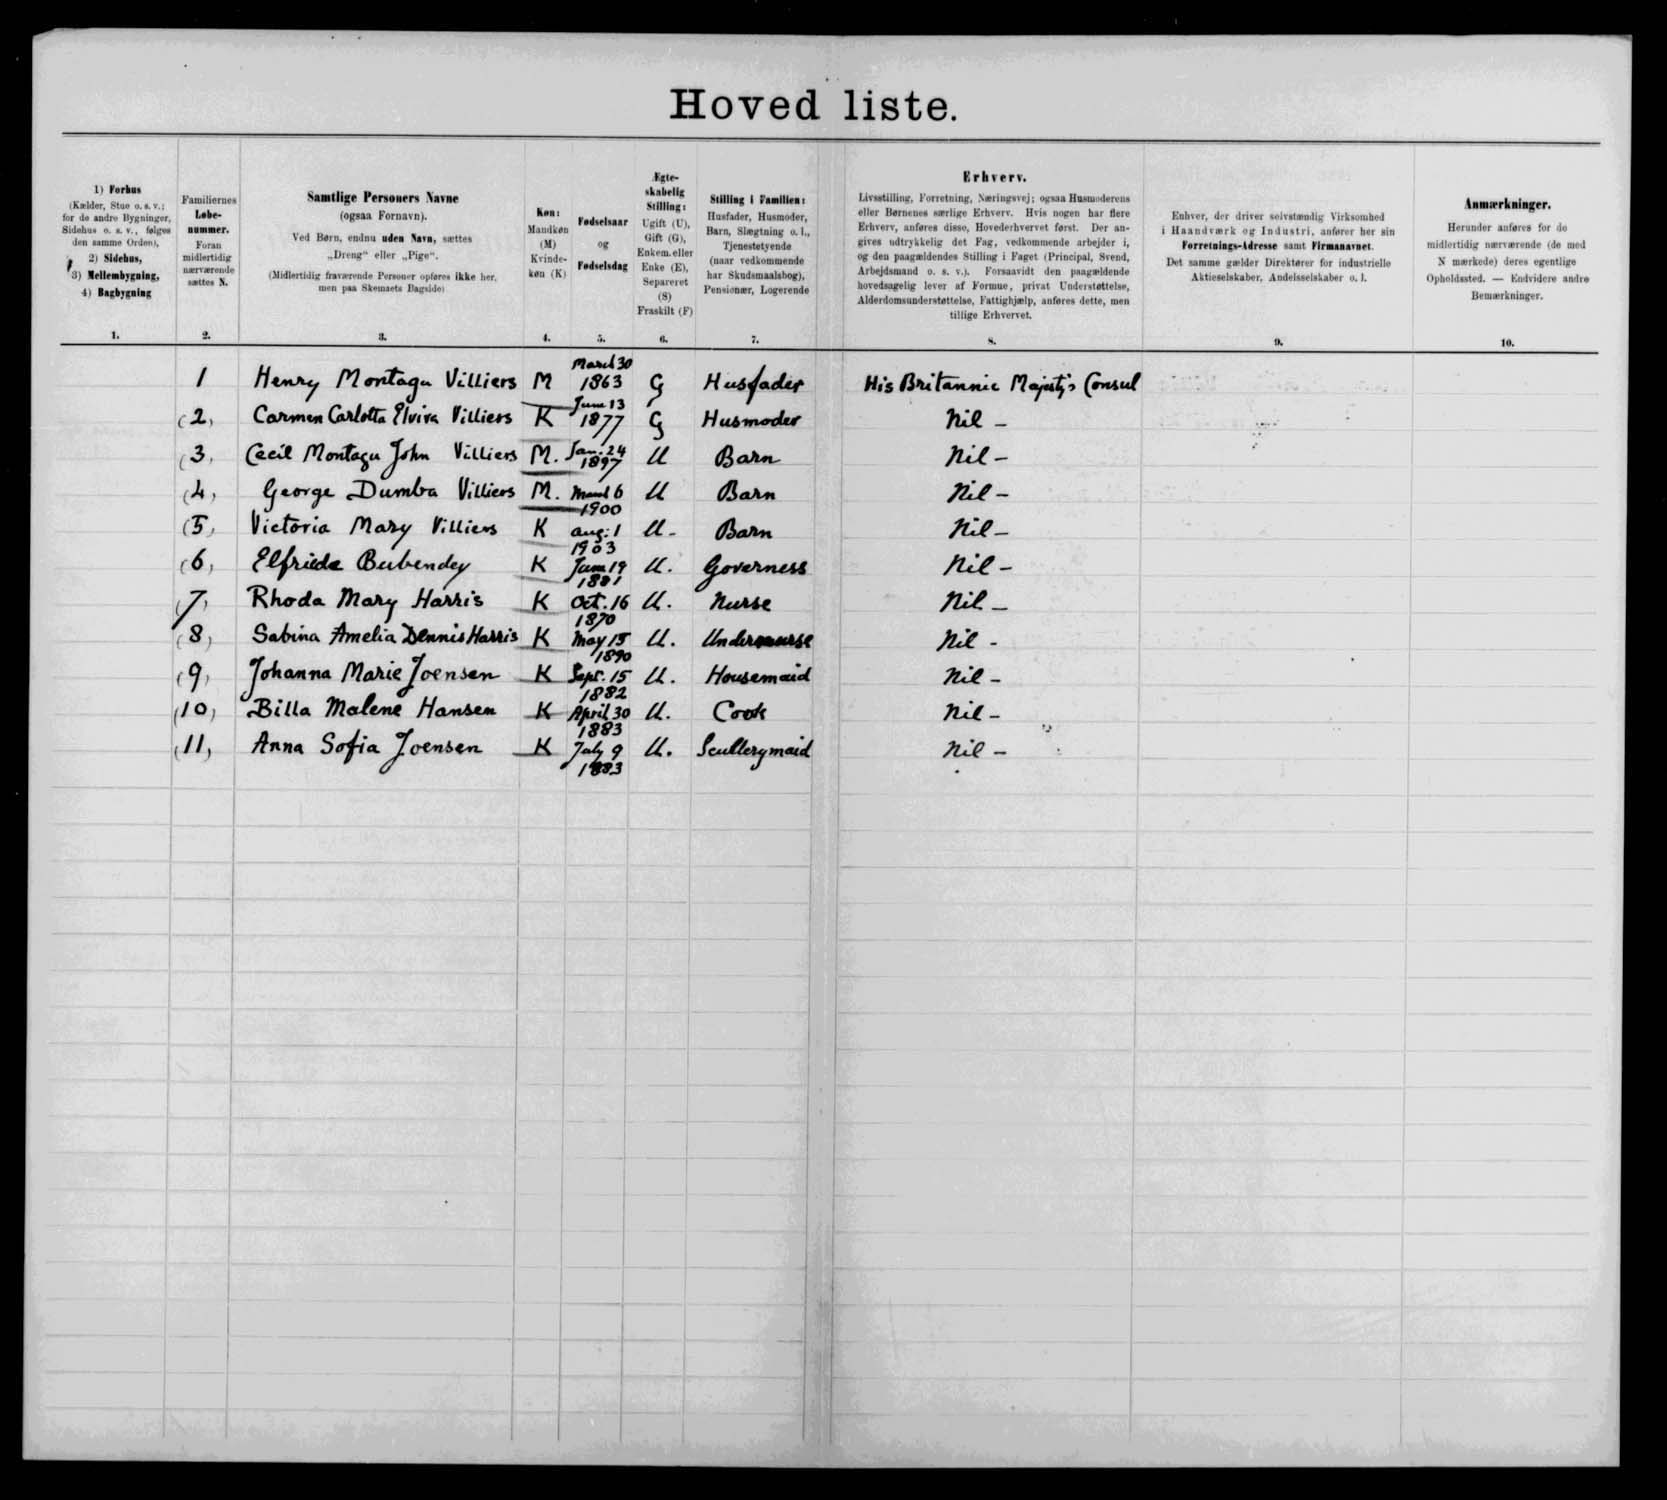 Hoved liste.
1) Forhus
(Kælder, Stue o. s. v.;
for de andre Bygninger,
Sidehus o. s. v., følges
den samme Orden),
2) Sidehus,
3) Mellembygning,
4) Bagbygning
1.
Familiernes
Løbe-
nummer.
Foran
midlertidig
nærværende
sættes N.
2.
Samtlige Personers Navne
(ogsaa Fornavn).
Ved Børn, endnu uden Navn, sættes
„Dreng“ eller „Pige“.
(Midlertidig fraværende Personer opføres ikke her,
men paa Skemaets Bagside)
3.
Køn:
Mandkøn
(M)
Kvinde-
køn (K)
4.
Fødselsaar
og
Fødselsdag
5.
Ægte-
skabelig
Stilling:
Ugift (U),
Gift (G),
Enkem. eller
Enke (E),
Separeret
(S)
Fraskilt (F)
6.
Stilling i Familien:
Husfader, Husmoder,
Barn, Slægtning o. l.,
Tjenestetyende
(naar vedkommende
har Skudsmaalsbog),
Pensionær, Logerende
7.
Erhverv.
Livsstilling, Forretning, Næringsvej; ogsaa Husmoderens
eller Børnenes særlige Erhverv. Hvis nogen har flere
Erhverv, anføres disse, Hovederhvervet først. Der an-
gives udtrykkelig det Fag, vedkommende arbejder i,
og den paagældendes Stilling i Faget (Principal, Svend,
Arbejdsmand o. s. v.). Forsaavidt den paagældende
hovedsagelig lever af Formue, privat Understøttelse,
Alderdomsunderstøttelse, Fattighjælp, anføres dette, men
tillige Erhvervet.
8.
Enhver, der driver selvstændig Virksomhed
i Haandværk og Industri, anfører her sin
Forretnings-Adresse samt Firmanavnet.
Det samme gælder Direktører for industrielle
Aktieselskaber, Andelsselskaber o. l.
9.
Anmærkninger.
Herunder anføres for de
midlertidig nærværende (de med
N mærkede) deres egentlige
Opholdssted. — Endvidere andre
Bemærkninger.
10.
1 Henry Montagu Villiers M March 30 1863 G Husfader His Britannic Majesty's Consul
(2) Carmen Carlotta Elvira Villiers K June 13 1877 G Husmoder Nil -
(3) Cecil Montagu John Villiers M. Jan. 24 1897 U Barn Nil -
(4) George Dumba Villiers M. March 6 1900 U Barn Nil -
(5) Victoria Mary Villiers K Aug: 1 1903 U - Barn Nil -
(6) Elfriede Bubendey K June 19 1881 U. Governess Nil -
(7) Rhoda Mary Harris K Oct. 16 1870 U. Nurse Nil -
(8) Sabina Amelia Dennis Harris K May 15 1890 U. Undernurse Nil -
(9) Johanna Marie Joensen K Sept. 15 1882 U. Housemaid Nil -
(10) Billa Malene Hansen K April 30 1883 U. Cook Nil -
(11) Anna Sofia Joensen K July 9 1883 U. Scullerymaid Nil -